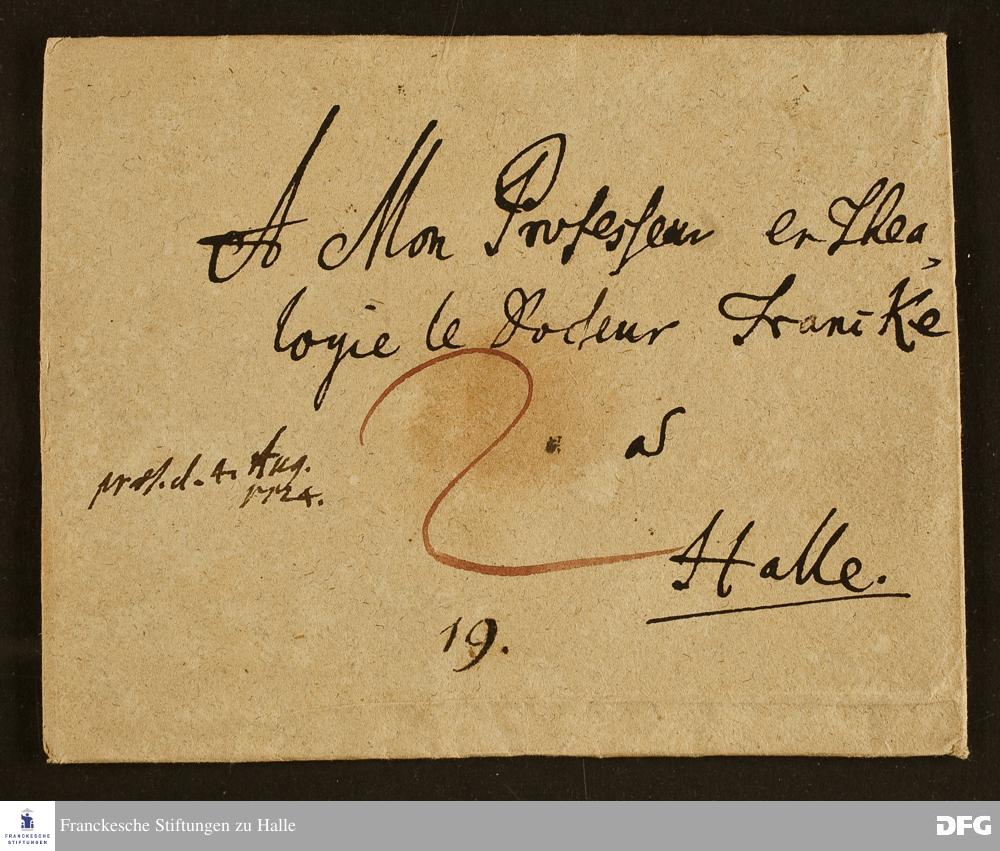 A Mon Professeur en Thea,
logie le Docteur Francke
a
præs. d. 4. Aug.
1724.
Halle.
19.
FRANCKESCHE
STIFTUNGEN
Franckesche Stiftungen zu Halle
DFG